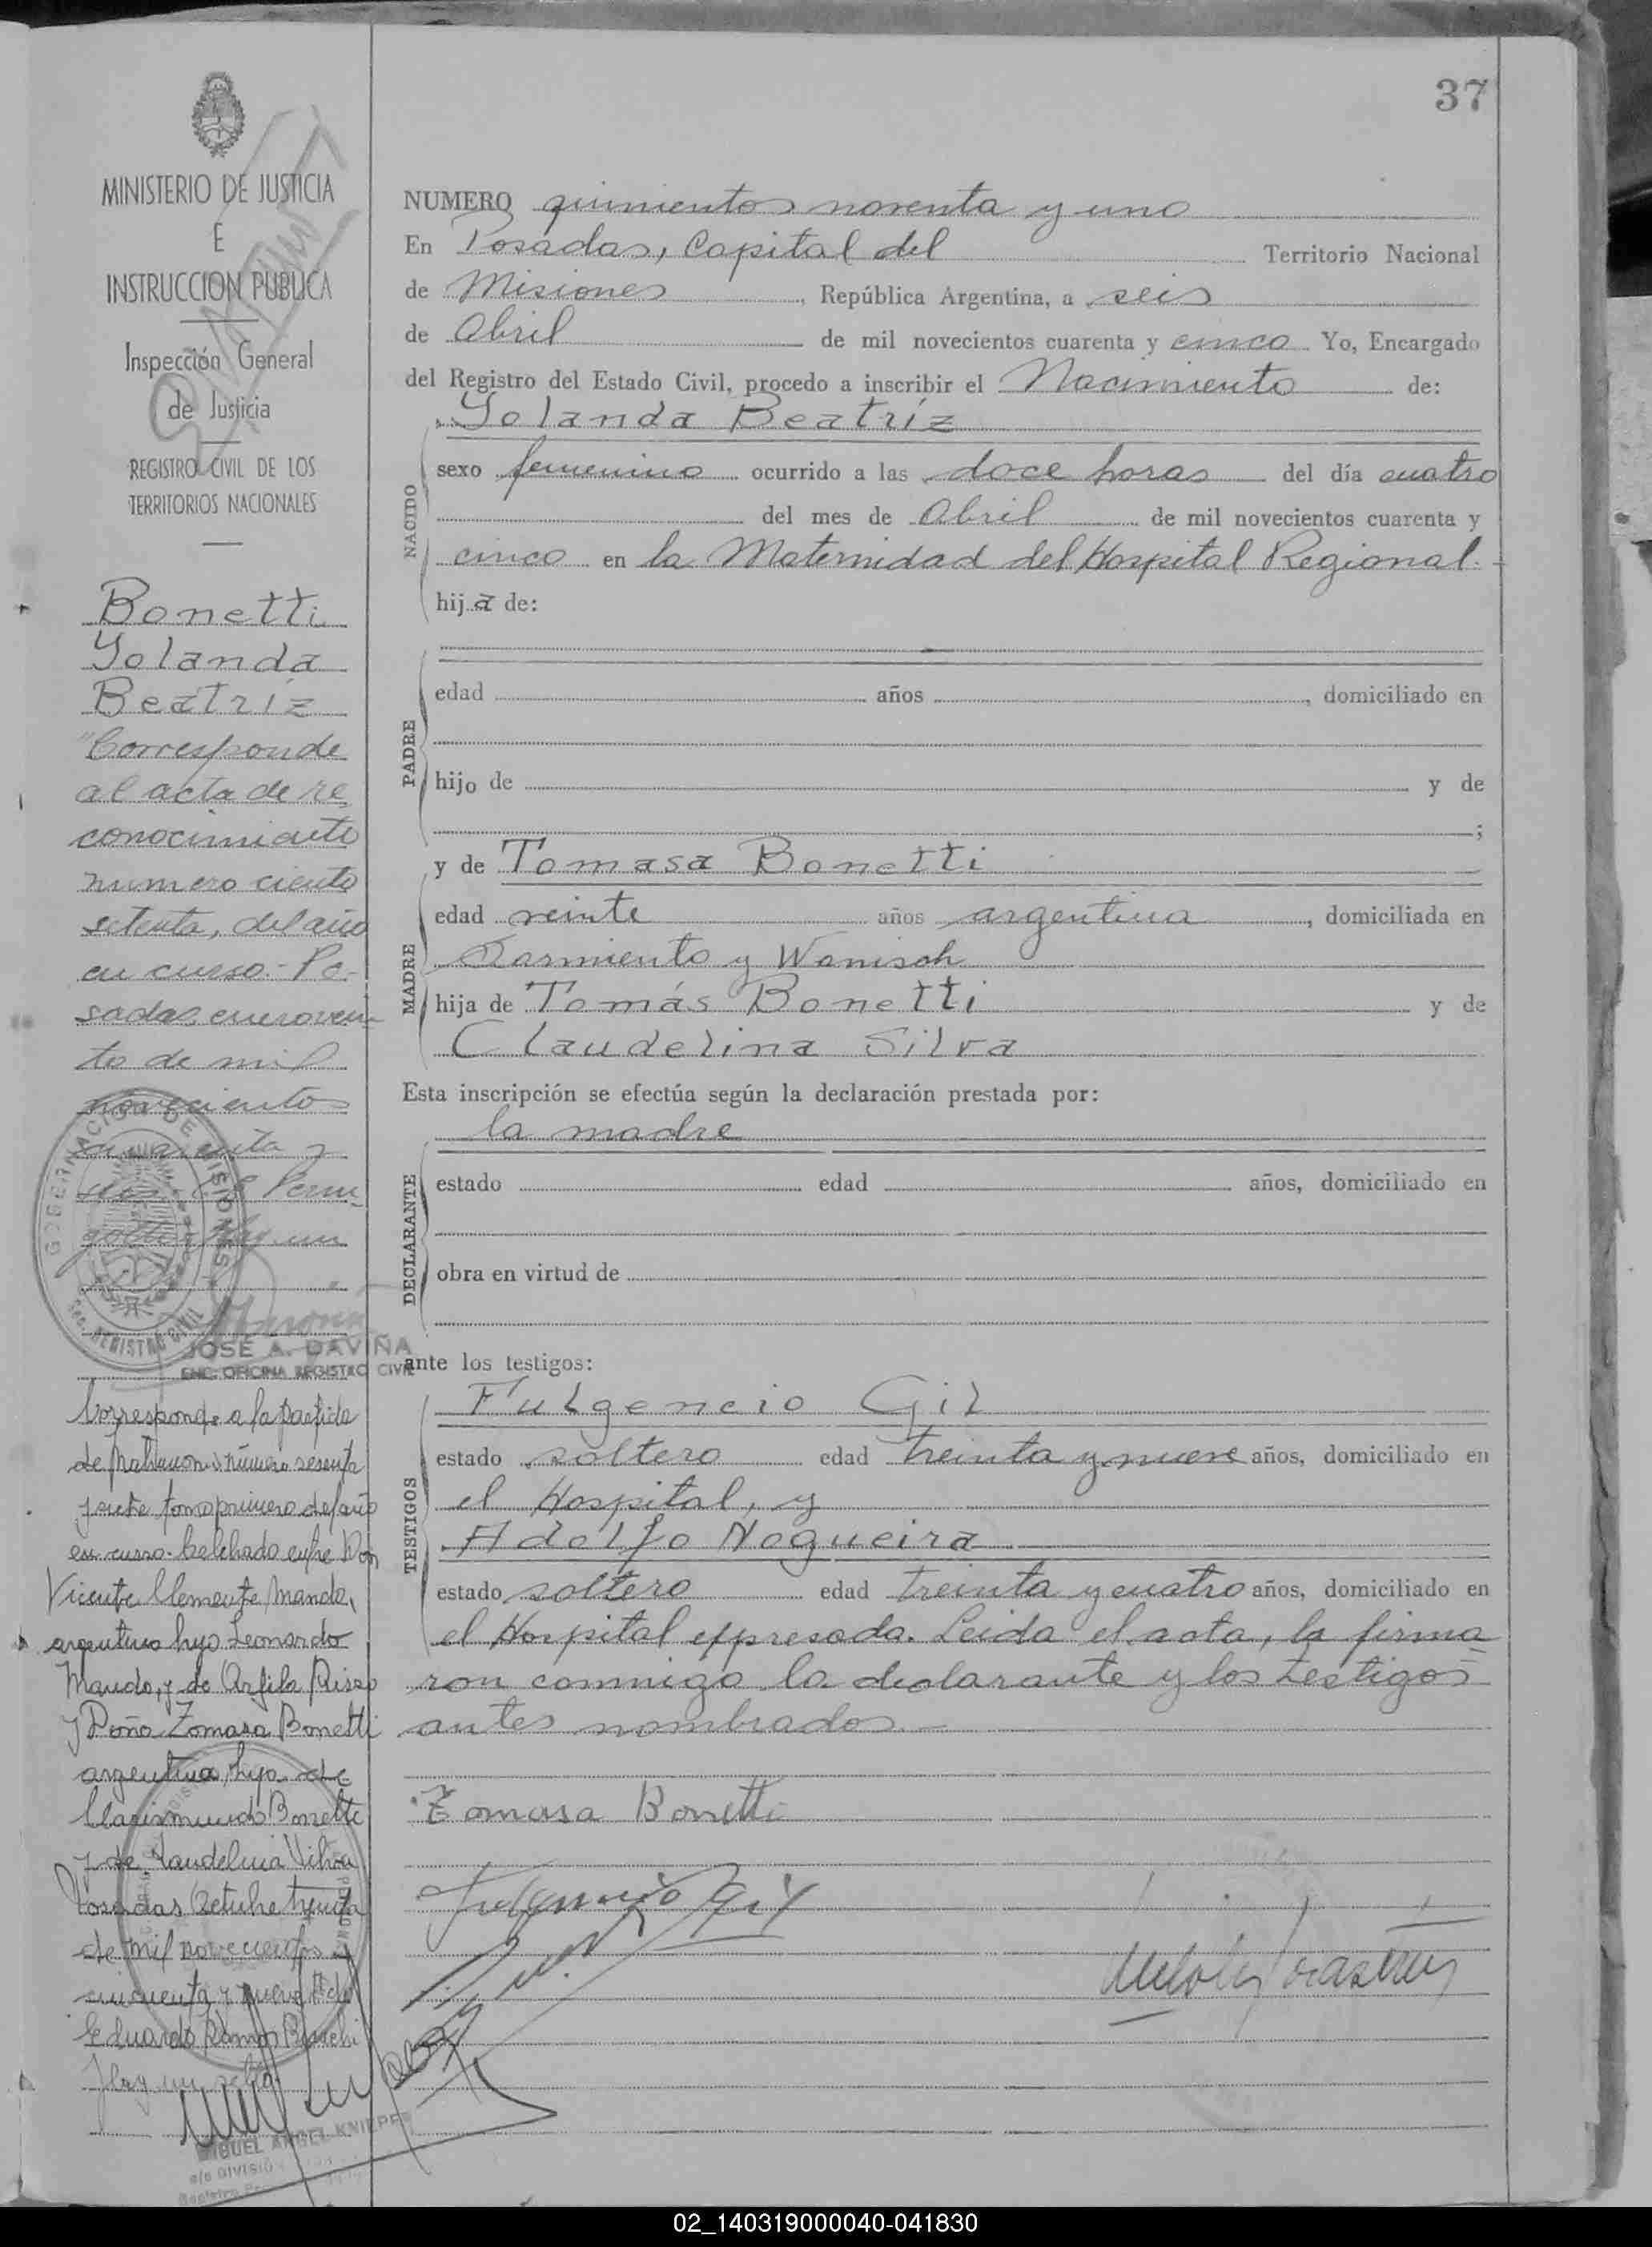 37
MINISTERIO DE JUSTICIA
E
INSTRUCCION PUBLICA
Inspección General
de Justicia
REGISTRO CIVIL DE LOS
TERRITORIOS NACIONALES
Bonetti
Yolanda
Beatríz
"Corresponde
al acta de re
conocimiento
numero ciento
setenta, del año
en curso.- Po-
sadas, enero vein
te de mil
novecientos
cuarenta y
hay un
GOBERNACION DE MISIONES
REGISTRO CIVIL
JOSE A. DAVIÑA
ENC. OFICINA REGISTRO CIVIL
Corresponde a la partida
de matrimonio número sesenta
y siete tomo primero del año
en curso. Celebrado entre Don
Vicente Clemente Mando,
argentino hijo Leonardo
Mando, y de
y Doña Tomasa Bonetti
argentina, hija de
Bonetti
y de
Posadas Octubre treinta
de mil novecientos
cincuenta y nueve
Eduardo Ramon
Hay un sello
MIGUEL ANGEL KNIEPPE
DIVISIÓN
NUMERO quinientos noventa y uno
En Posadas, Capital del Territorio Nacional
de Misiones, República Argentina, a seis
de Abril de mil novecientos cuarenta y cinco Yo, Encargado
del Registro del Estado Civil, procedo a inscribir el Nacimiento de:
Yolanda Beatríz
NACIDO
sexo femenino ocurrido a las doce horas del día cuatro
del mes de Abril de mil novecientos cuarenta y
cinco en la Maternidad del Hospital Regional.-
hija de:
PADRE
edad años , domiciliado en
hijo de y de
;
MADRE
y de Tomasa Bonetti
edad veinte años argentina, domiciliada en
Sarmiento y Wanisch
hija de Tomás Bonetti y de
Claudelina Silva
Esta inscripción se efectúa según la declaración prestada por:
la madre
DECLARANTE
estado edad años, domiciliado en
obra en virtud de
ante los testigos:
TESTIGOS
Fulgencio Gil
estado soltero edad treinta y nueve años, domiciliado en
el Hospital, y
Adolfo Nogueira
estado soltero edad treinta y cuatro años, domiciliado en
el Hospital expresado. Leida el acta, la firma
ron conmigo la declarante y los testigos
antes nombrados.-
Tomasa Bonetti
Fulgencio Gil
02_140319000040-041830